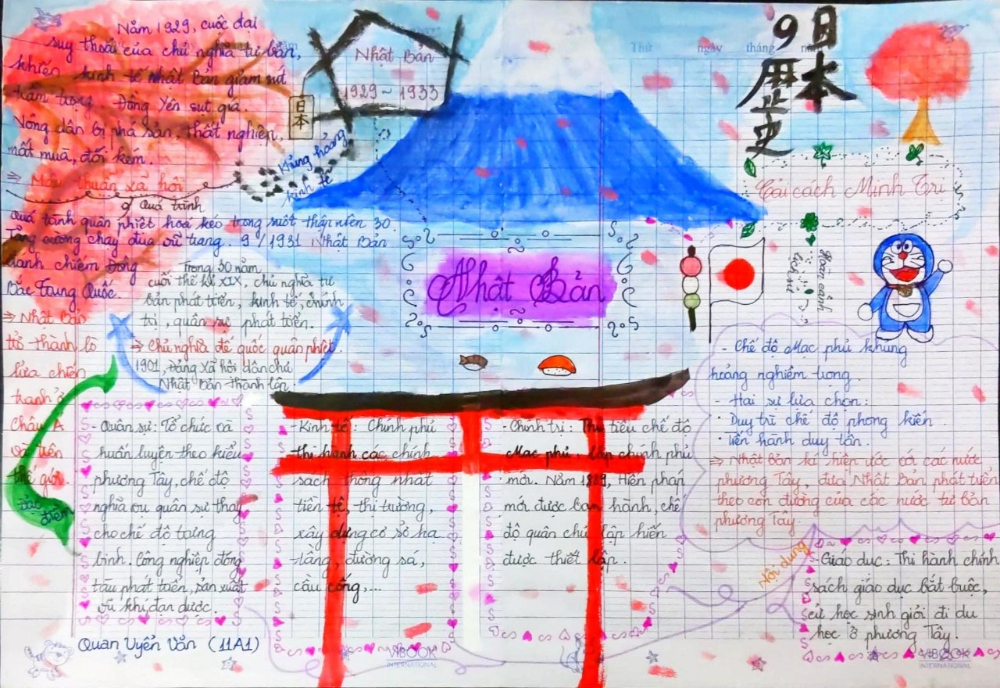 Năm 1929, cuộc đại
suy thoái của chủ nghĩa tư bản,
khiến kinh tế Nhật Bản giảm sút
trầm trọng. Đồng Yên sụt giá.
Nông dân bị phá sản, thất nghiệp,
mất mùa, đói kém.
⇒ Mâu thuẫn xã hội
Nhật Bản
1929 ~ 1933
日本
Khủng hoảng
kinh tế
quá trình
Quá trình quân phiệt hoá kéo trong suốt thập niên 30
Tăng cường chạy đua vũ trang. 9/1931 Nhật Bản
đánh chiếm Đông
Bắc Trung Quốc.
⇒ Nhật Bản
trở thành lò
lửa chiến
tranh ở
Châu Á
và trên
thế giới
Trong 30 năm
cuối thế kỉ XIX, chủ nghĩa tư
bản phát triển, kinh tế, chính
trị, quân sự phát triển.
⇒ Chủ nghĩa đế quốc quân phiệt.
1901, Đảng xã hội dân chủ
Nhật Bản thành lập
Nhật Bản
Thứ ngày tháng
日本
の
歴史
Cải cách Minh Trị
Hoàn cảnh
lịch sử
- Chế độ Mạc phủ khủng
hoảng nghiêm trọng.
- Hai sự lựa chọn:
• Duy trì chế độ phong kiến
• Tiến hành duy tân.
⇒ Nhật Bản kí hiệp ước với các nước
phương Tây, đưa Nhật Bản phát triển
theo con đường của các nước tư bản
phương Tây.
Nội dung
- Quân sự: Tổ chức và
huấn luyện theo kiểu
phương Tây, chế độ
nghĩa vụ quân sự thay
cho chế độ trưng
binh. Công nghiệp đóng
tàu phát triển, sản xuất
vũ khí đạn dược.
- Kinh tế: Chính phủ
thi hành các chính
sách thống nhất
tiền tệ, thị trường,
xây dựng cơ sở hạ
tầng, đường sá,
cầu cống,...
- Chính trị: Thủ tiêu chế độ
Mạc phủ, lập chính phủ
mới. Năm 1889, Hiến pháp
mới được ban hành, chế
độ quân chủ lập hiến
được thiết lập.
- Giáo dục: Thi hành chính
sách giáo dục bắt buộc,
cử học sinh giỏi đi du
học ở phương Tây.
Quan Uyển Vân (11A1)
VIBOOK
INTERNATIONAL
VIBOOK
INTERNATIONAL